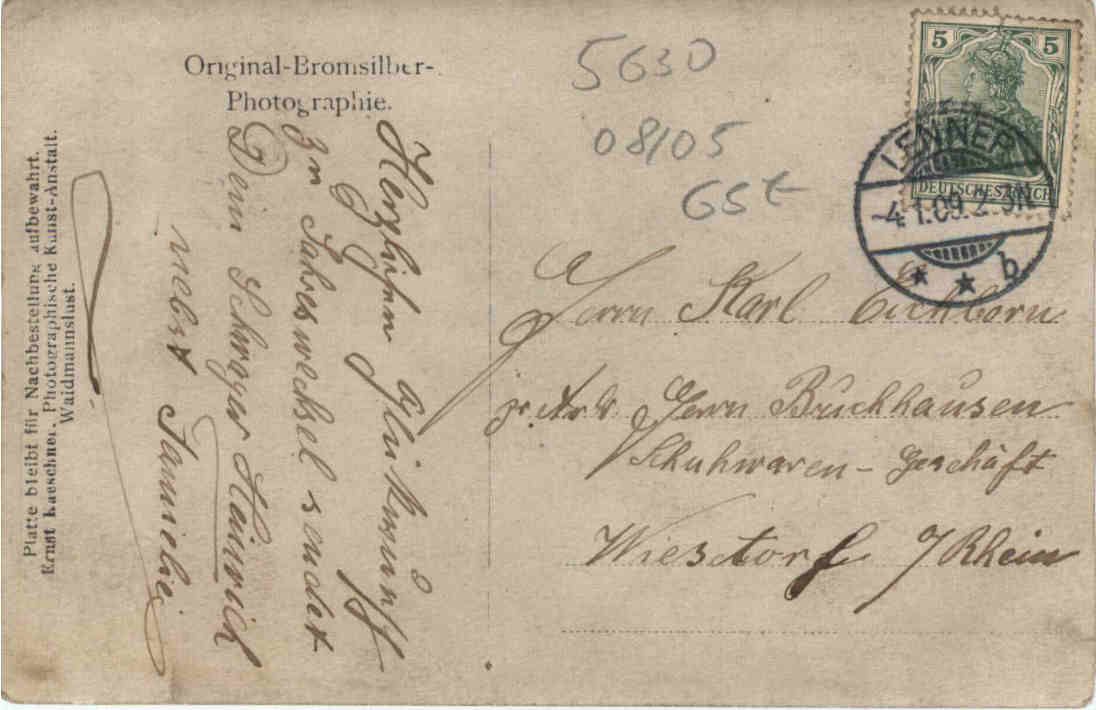 Original-Bromsilber-
Photographie.
5630
08/05
GSt
5 5
DEUTSCHES REICH
LENNEP
-4.1.09.2-3N.
* * b
Herzlichen Glükwunsch
zu Jahreswechsel sendet
Dein Schwager Heinrich
nebst Familie
Platte bleibt für Nachbestellung aufbewahrt.
Ernst Kaeschner, Photographische Kunst-Anstalt.
Waidmannslust.
Herrn Karl Eichhorn
Herrn Bruckhausen
Schuhwaren-Geschäft
Wiesdorf / Rhein